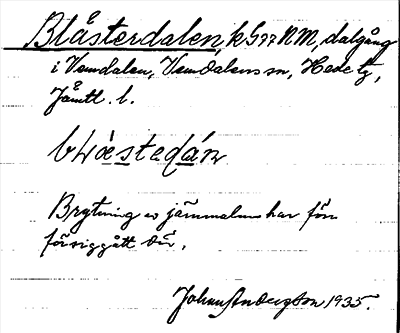 Blåsterdalen, k G 77 NM, dalgång
i Vemdalen, Vemdalens sn, Hede tg,
Jämtl. l.
Brytning av järnmalm har förr
försiggått där.
Johan Anderson 1935.